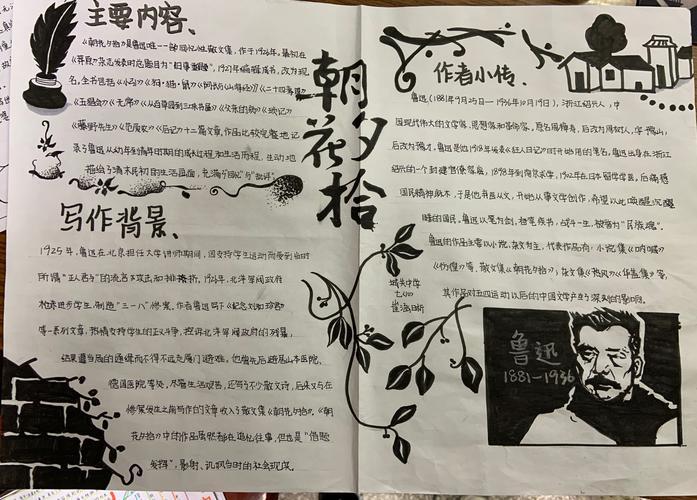 主要内容、
《朝花夕拾》是鲁迅唯一一部回忆性散文集，作于1926年，最初在
《莽原》杂志发表时总题目为“旧事重提”，1927年编辑成书，改为现
名，全书包括《小引》《狗·猫·鼠》《阿长与山海经》《二十四孝图》
《五猖会》《无常》《从百草园到三味书屋》《父亲的病》《琐记》
《藤野先生》《范爱农》《后记》十二篇文章，作品比较完整地记
录了鲁迅从幼年到青年时期的成长过程和生活历程，生动地
描绘了清末民初的生活画面，充满了回忆与“批评”。
写作背景、
1925年，鲁迅在北京担任大学讲师期间，因支持学生运动而受到当时
所谓“正人君子”的流言攻击和排挤。1926年，北洋军阀政府
枪杀进步学生，制造“三一八”惨案。作者鲁迅写下《纪念刘和珍君》
等一系列文章，热情支持学生的正义斗争，控诉北洋军阀政府的残暴，
结果遭当局的通缉而不得不远走厦门避难。他曾先后避居山本医院，
德国医院等处，尽管生活艰苦，还写了不少散文诗，后来又与在
惨案发生之前写作的文章收入了散文集《朝花夕拾》，《朝
花夕拾》中的作品虽然都在追忆往事，但也是“借题
发挥”，影射、讥讽当时的社会现实。
朝花夕拾
作者小传、
鲁迅，(1881年9月25日—1936年10月19日)，浙江绍兴人，中
国现代伟大的文学家、思想家和革命家，原名周樟寿，后改为周树人，字豫山，
后改为豫才，鲁迅是他1918年发表《狂人日记》时开始用的笔名，鲁迅出身在浙江
绍兴的一个封建官僚家庭，1898年到南京求学，1902年在日本留学学医，后痛感
国民精神麻木，于是他弃医从文，开始从事文学创作，希望以此唤醒沉醒
睡的国民，鲁迅以笔为剑，挡笔疾书，战斗一生，被誉为“民族魂”。
鲁迅的作品主要以小说，散文为主，代表作品有：小说集《呐喊》
《彷徨》等，散文集《朝花夕拾》；杂文集《热风》《华盖集》等，
其作品对五四运动以后的中国文学产生了深刻的影响。
城关中学
鲁迅
1881—1936